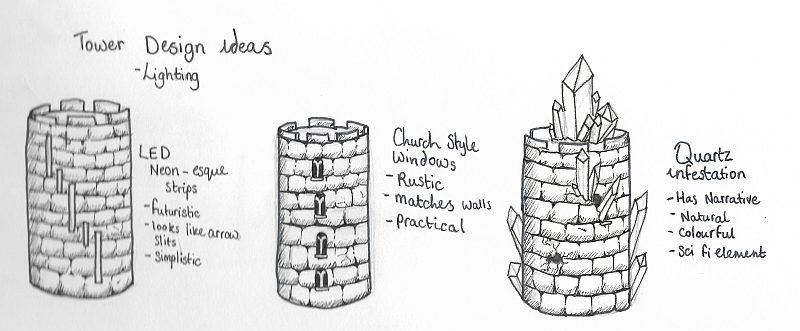 Tower Design ideas
- Lighting
LED
Neon-esque
strips
- futuristic
- looks like arrow
slits
- Simplistic
Church Style
Windows
- Rustic
- matches walls
- Practical
Quartz
infestation
- Has Narrative
- Natural
- Colourful
- Sci fi element